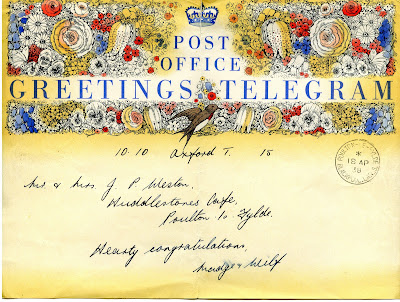 POST
OFFICE
GREETINGS TELEGRAM
10.10 Oxford T. 15
Mr. & Mrs. J. P. Weston,
Huddlestones Cafe,
Poulton le Fylde.
Hearty congratulations,
Madge & Wilf
18 AP
38